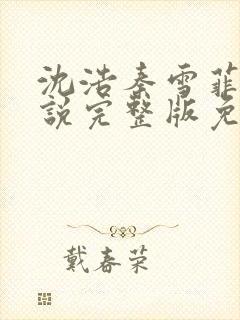 沈浩秦雪菲
说完整版免
戴春荣